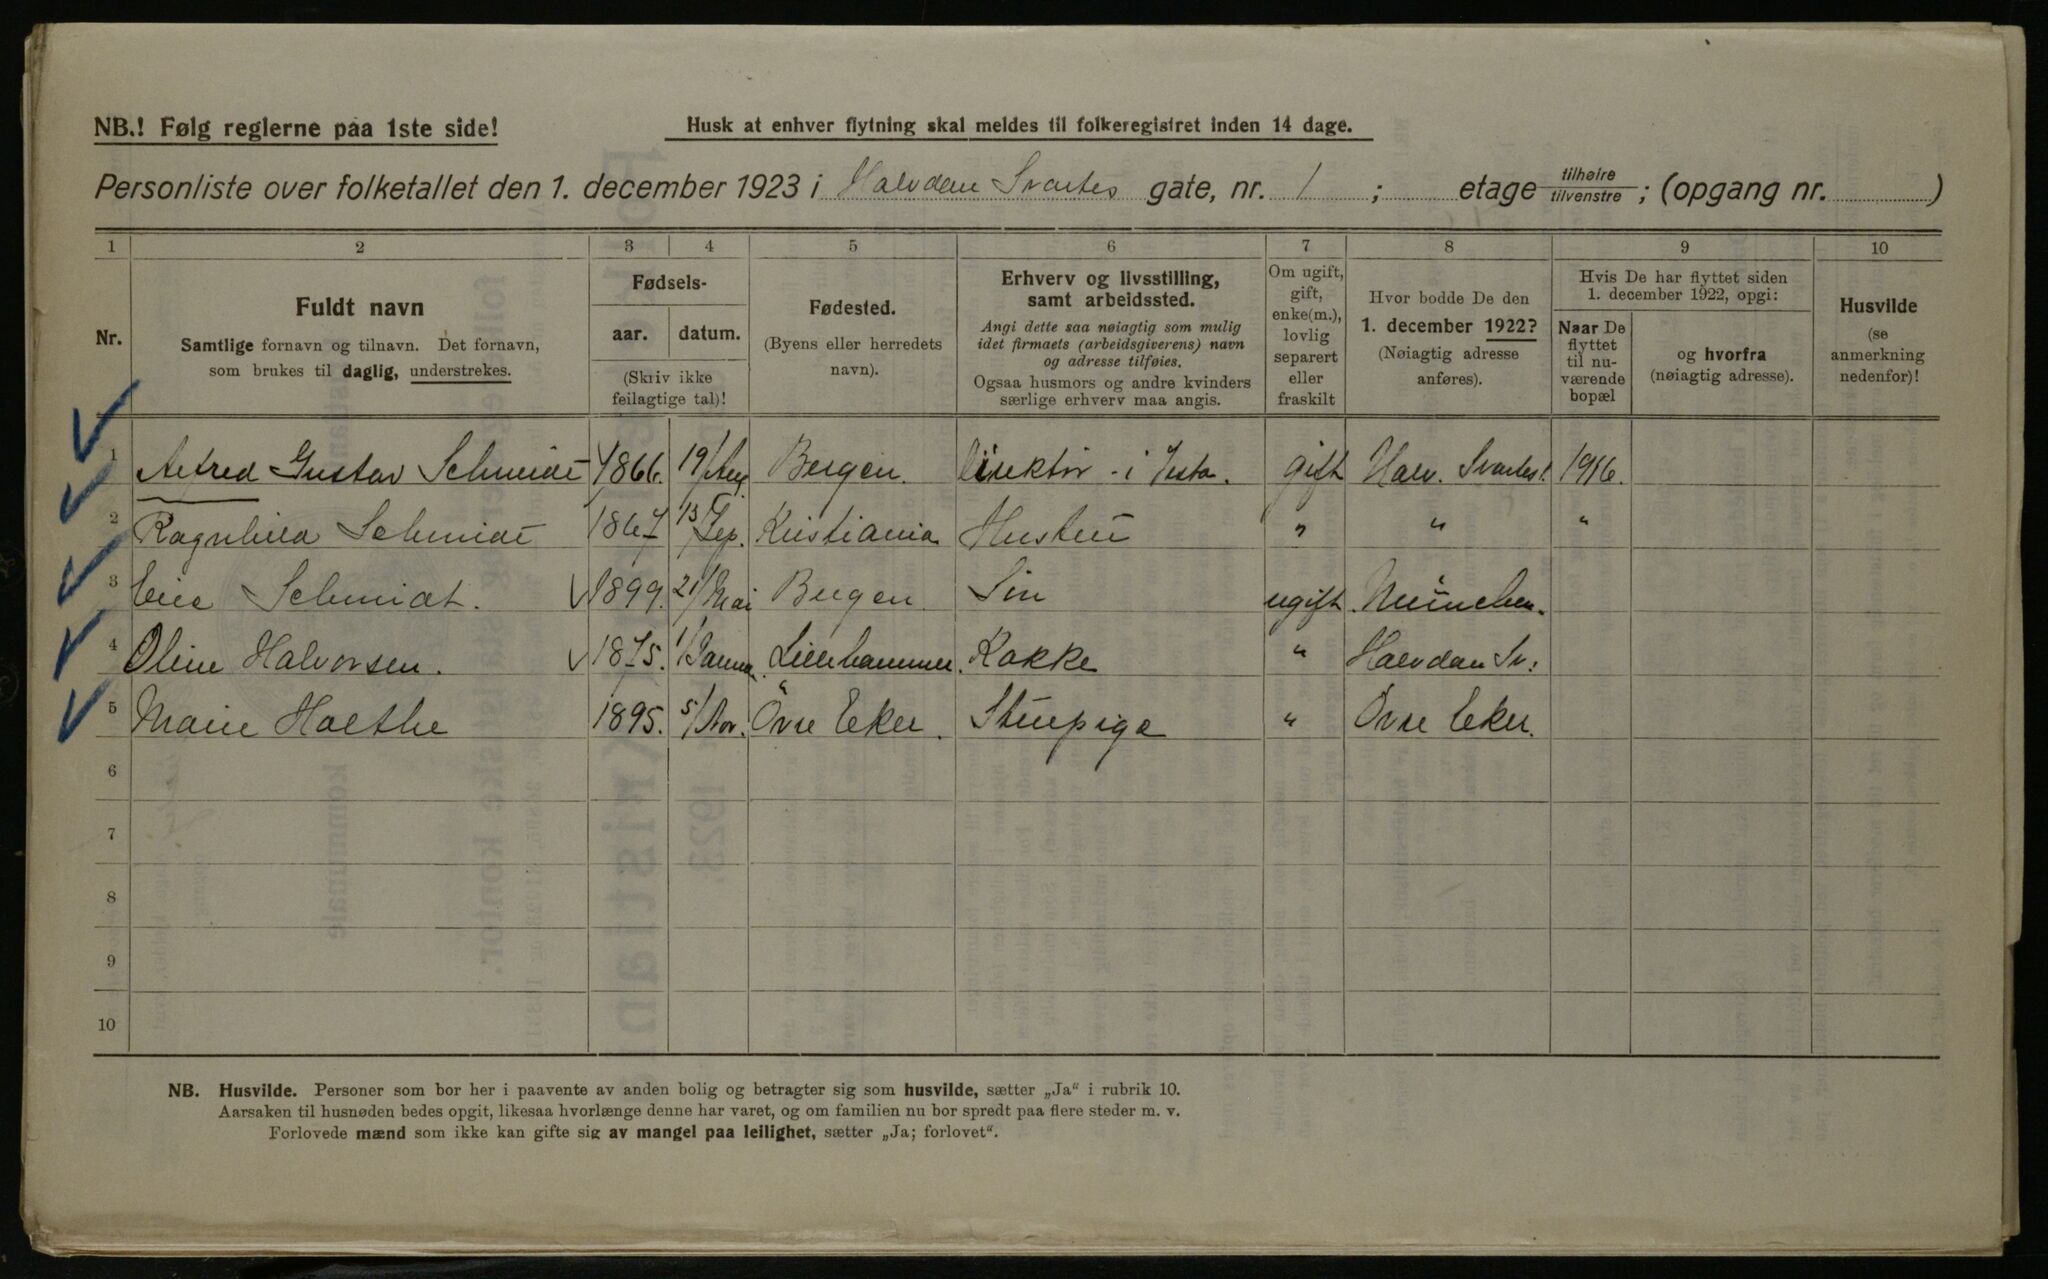 NB.! Følg reglerne paa 1ste side!
Husk at enhver flytning skal meldes til folkeregistret inden 14 dage.
Personliste over folketallet den 1. december 1923 i Halvdan Svartes gate, nr. 1 ; etage tilhøire tilvenstre ; (opgang nr. )
1 2 3 4 5 6 7 8 9 10
Nr.
Fuldt navn
Samtlige fornavn og tilnavn. Det fornavn,
som brukes til daglig, understrekes.
Fødsels-
aar. datum.
(Skriv ikke
feilagtige tal)!
Fødested.
(Byens eller herredets
navn).
Erhverv og livsstilling,
samt arbeidssted.
Angi dette saa nøiagtig som mulig
idet firmaets (arbeidsgiverens) navn
og adresse tilføies.
Ogsaa husmors og andre kvinders
særlige erhverv maa angis.
Om ugift,
gift,
enke(m.),
lovlig
separert
eller
fraskilt
Hvor bodde De den
1. december 1922?
(Nøiagtig adresse
anføres).
Hvis De har flyttet siden
1. december 1922, opgi:
Naar De
flyttet
til nu-
værende
bopæl
og hvorfra
(nøiagtig adresse).
Husvilde
(se
anmerkning
nedenfor)!
1 Alfred Gustav Schmidt 1866. 19/Aug Bergen. Direktør i gift Halv. Svartes 1. 1916.
2 Ragnhild Schmidt 1867 13/Sep. Kristiania Hustru " " "
3 Schmidt. 1899. 21/Mai Bergen Sön ugift München.
4 Oline Halvorsen. 1875. 1/Januar. Lillehammer. Kokke " Halvdan Sv:
5 Marie Holthe 1895. 5/Nov. Övre Eker. Stuepige " Övre Eker.
6
7
8
9
10
NB. Husvilde. Personer som bor her i paavente av anden bolig og betragter sig som husvilde, sætter „Ja“ i rubrik 10.
Aarsaken til husnøden bedes opgit, likesaa hvorlænge denne har varet, og om familien nu bor spredt paa flere steder m. v.
Forlovede mænd som ikke kan gifte sig av mangel paa leilighet, sætter „Ja; forlovet“.